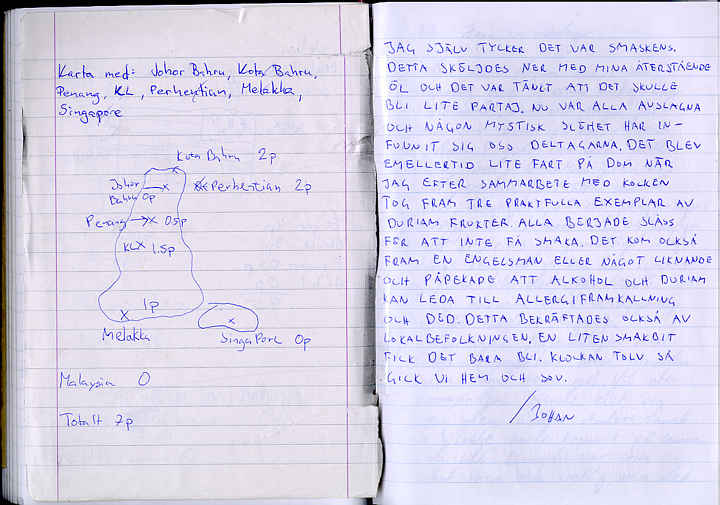 Karta med: Johor Bahru, Kota Bahru,
Penang, KL, Perhentian, Melakka,
Singapore
Kota Bahru 2p
Johor
Bahru 0p
Perhentian 2p
Penang → x 0.5p
KL x 1.5p
1p
x
Melakka
x
Singapore 0p
Malaysia 0
Totalt 7p
JAG SJÄLV TYCKER DET VAR SMASKENS.
DETTA SKÖLJDES NER MED MINA ÅTERSTÅENDE
ÖL OCH DET VAR TÄNKT ATT DET SKULLE
BLI LITE PARTAJ. NU VAR ALLA AVSLAGNA
OCH NÅGON MYSTISK SLÖHET HAR IN-
FUNNIT SIG OSS DELTAGARNA. DET BLEV
EMELLERTID LITE FART PÅ DOM NÄR
JAG EFTER SAMMARBETE MED KOCKEN
TOG FRAM TRE PRAKTFULLA EXEMPLAR AV
DURIAM FRUKTER. ALLA BÖRJADE SLÅSS
FÖR ATT INTE FÅ SMAKA. DET KOM OCKSÅ
FRAM EN ENGELSMAN ELLER NÅGOT LIKNANDE
OCH PÅPEKADE ATT ALKOHOL OCH DURIAM
KAN LEDA TILL ALLERGIFRAMKALLNING
OCH DÖD. DETTA BEKRÄFTADES OCKSÅ AV
LOKALBEFOLKNINGEN. EN LITEN SMAKBIT
FICK DET BARA BLI. KLOCKAN TOLV SÅ
GICK VI HEM OCH SOV.
/JOHAN